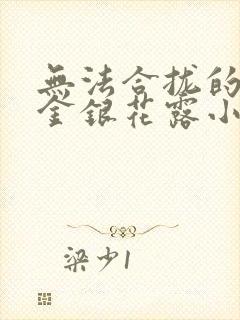 無法合拢的
金銀花露小
梁少1